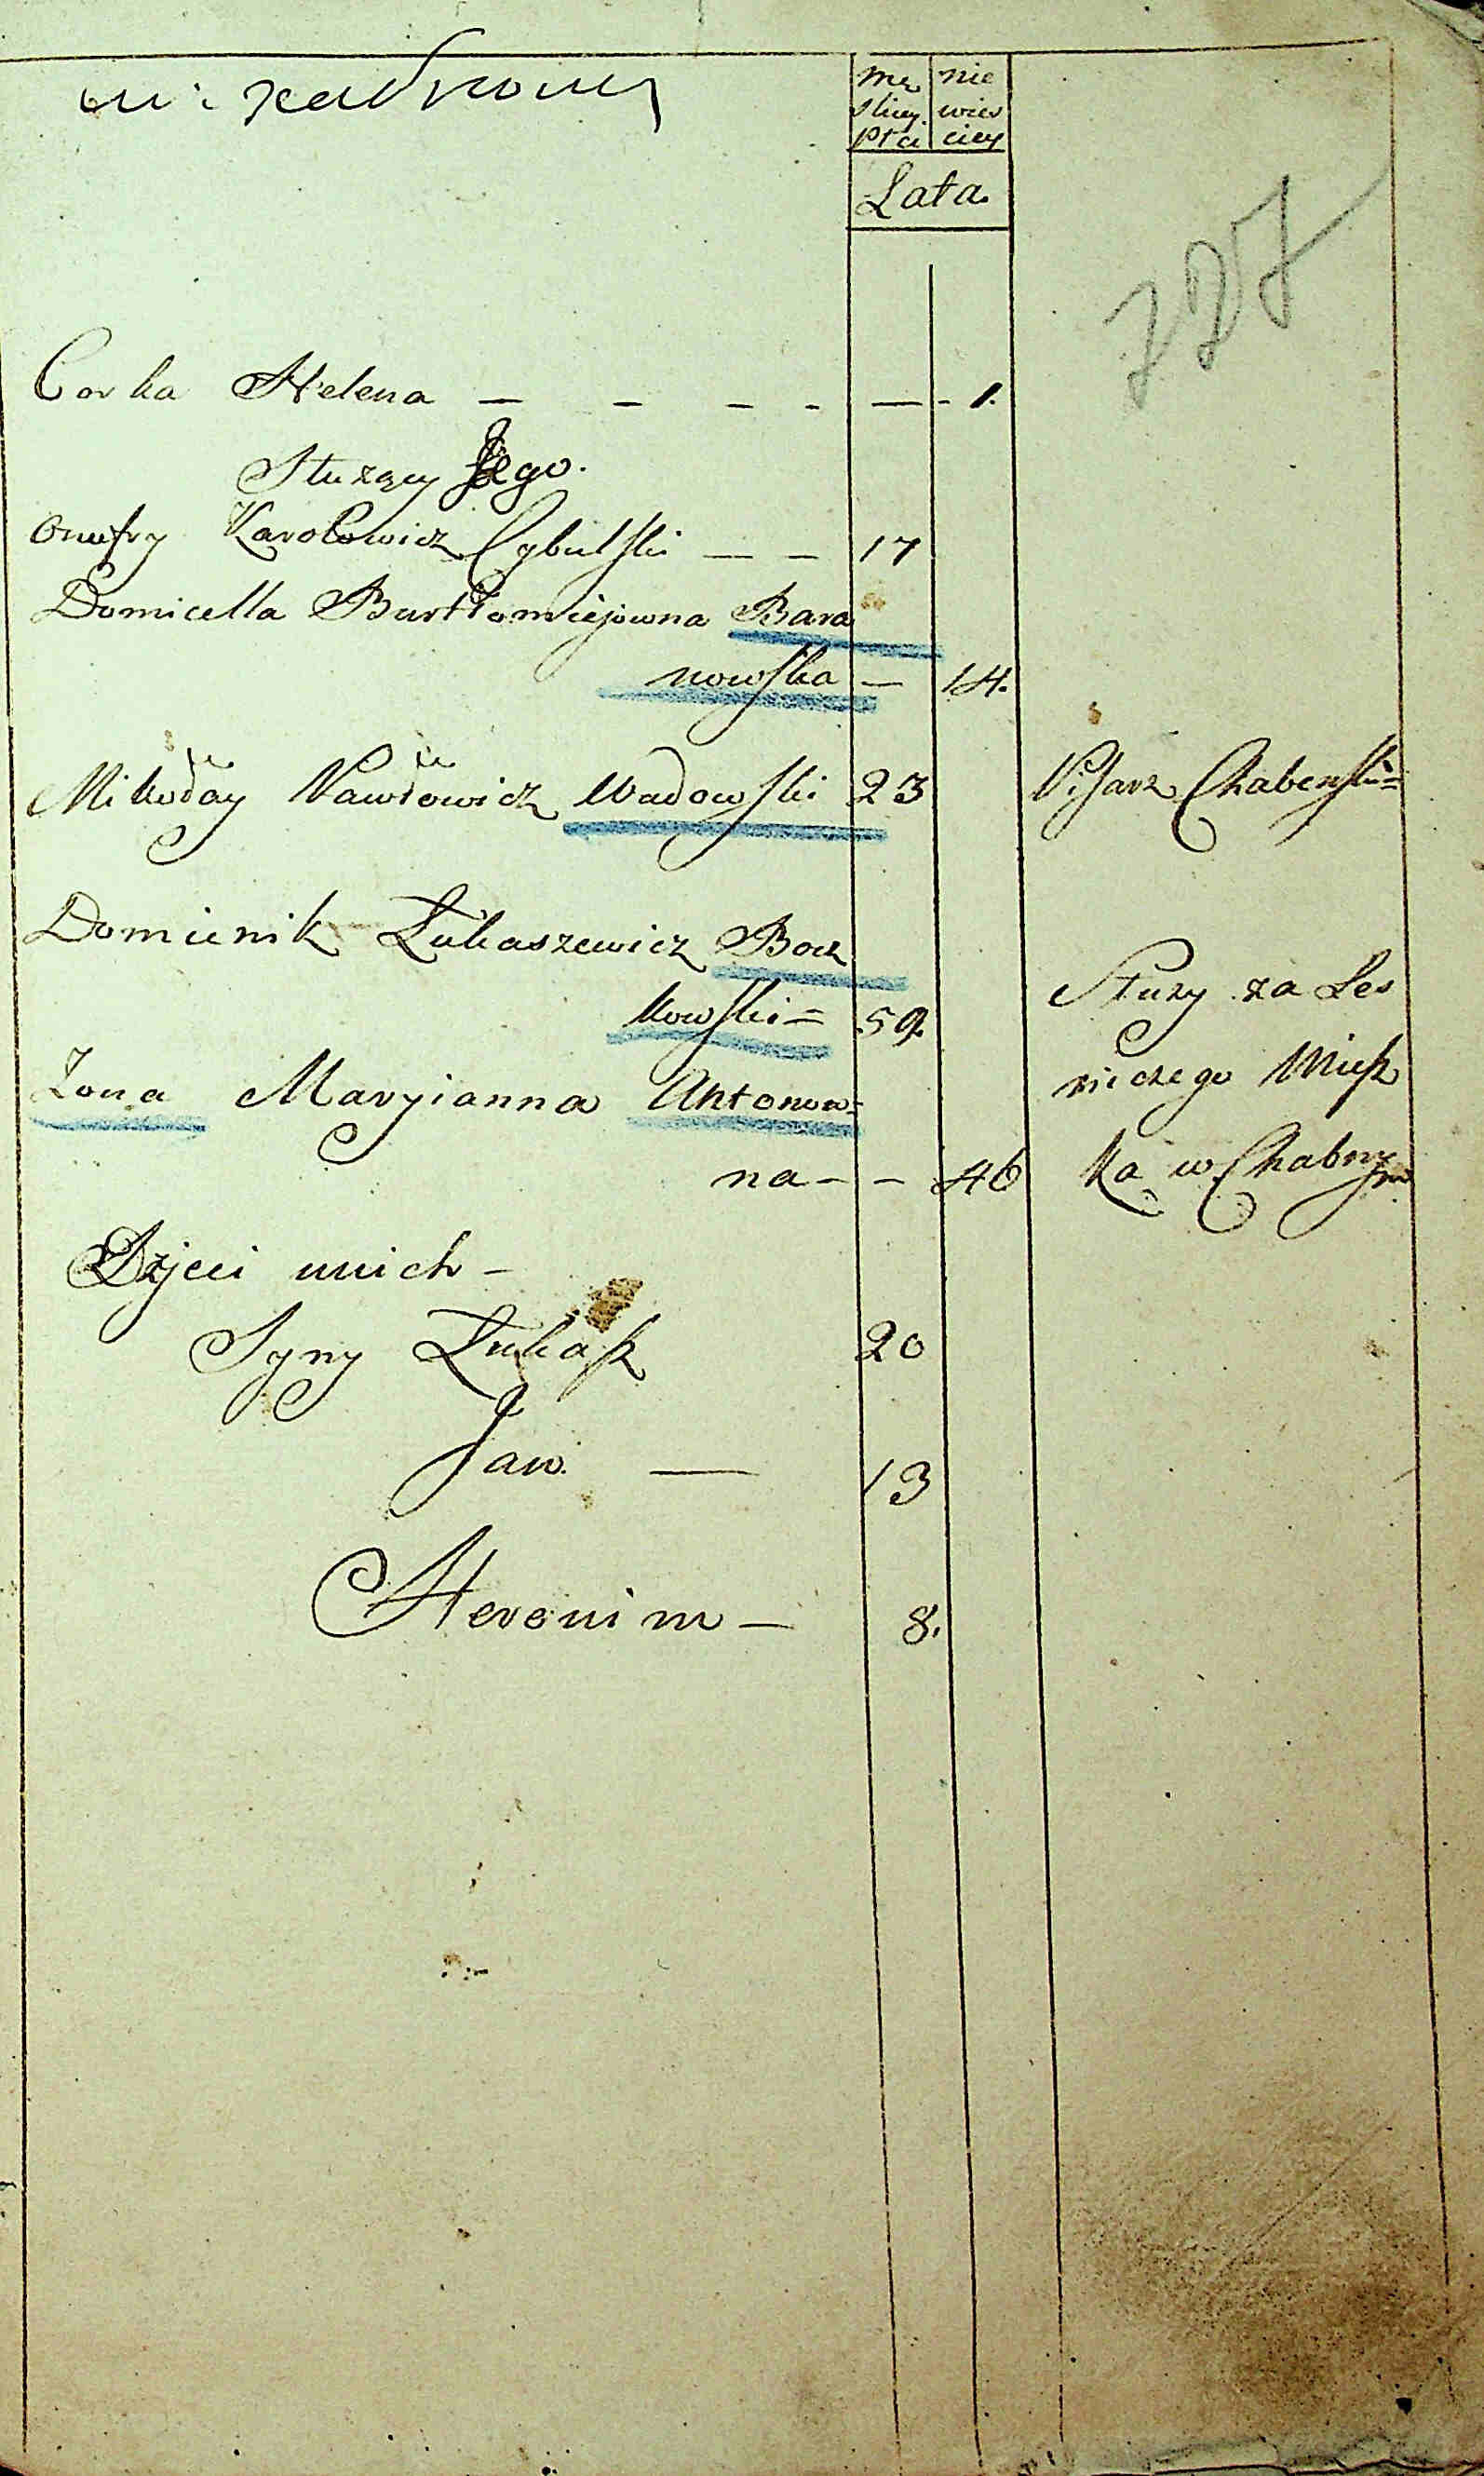 mę nie
skiey wies
płci ciey
Lata.
227
Corka Helena — — — — — - 1.
Służący Jego.
Onufry Karolowicz Cybulski — — 17
Domicella Bartłomiejowna Bara
nowska — 14.
Mikołay Pawłowicz Wadowski 23 Pisarz Chabenski=
Dominik Łukaszewicz Bocz
kowski= 59. Służy za Les
Zona Maryianna Antonow= niczego Miesz
na - - 46 Ka w Chabnym
Dzieci unich -
Syny Łukasz 20
Jan. — 13
Heronim — 8.